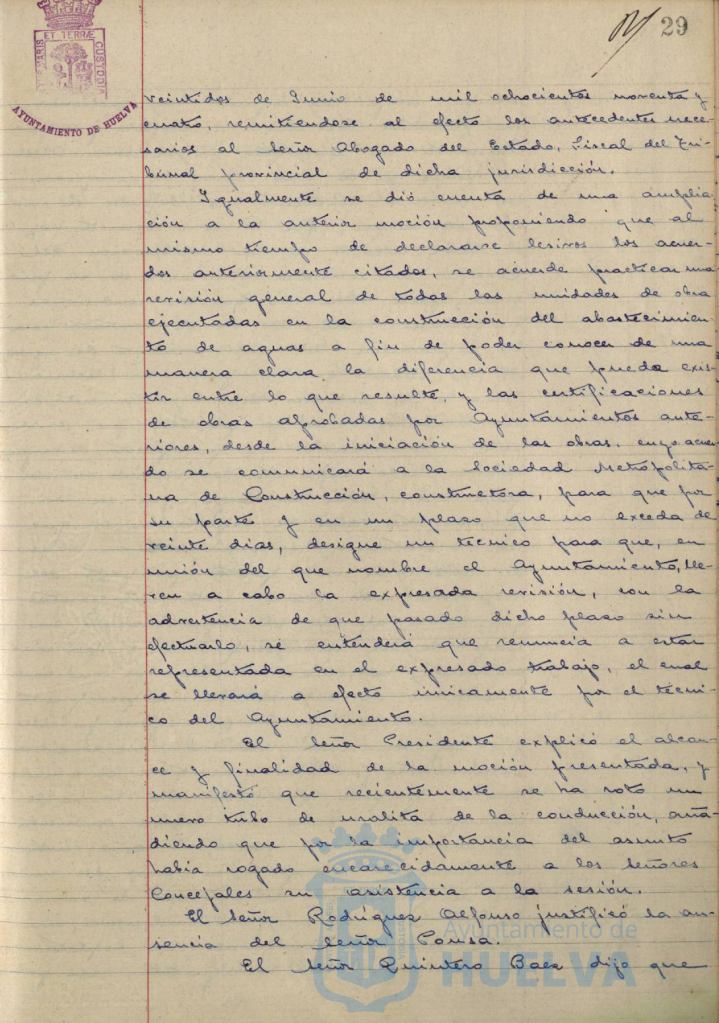 29
ET TERRÆ
CUSTODIA
AYUNTAMIENTO DE HUELVA
veintidos de Junio de mil ochocientos noventa y
cuatro, remitiendose al efecto los antecedentes nece-
sarios al Señor Abogado del Estado, Fiscal del Tri-
bunal provincial de dicha jurisdicción.
Igualmente se dió cuenta de una amplia-
ción a la anterior moción proponiendo que al
mismo tiempo de declararse lesivos los acuer-
dos anteriormente citados, se acuerde practicar una
revisión general de todas las unidades de obra
ejecutadas en la construcción del abastecimien-
to de aguas a fin de poder conocer de una
manera clara la diferencia que pueda exis-
tir entre lo que resulte, y las certificaciones
de obras aprobadas por Ayuntamientos ante-
riores, desde la iniciación de las obras, cuyo acuer-
do se comunicará a la Sociedad Metropolita-
na de Construcción, constructora, para que por
su parte y en un plazo que no exceda de
veinte dias, designe un técnico para que, en
unión del que nombre el Ayuntamiento, lle-
ven a cabo la expresada revisión, con la
advertencia de que pasado dicho plazo sin
efectuarlo, se entenderá que renuncia a estar
representada en el expresado trabajo, el cual
se llevará a efecto únicamente por el técni-
co del Ayuntamiento.
El Señor Presidente explicó el alcan-
ce y finalidad de la moción presentada, y
manifestó que recientemente se ha roto un
nuevo tubo de uralita de la conducción, aña-
diendo que por la importancia del asunto
habia rogado encarecidamente a los Señores
Concejales su asistencia a la sesión.
El Señor Rodríguez Alfonso justificó la au-
sencia del Señor Ponsa.
El Señor Quintero Baez dijo que
Ayuntamiento de
HUELVA